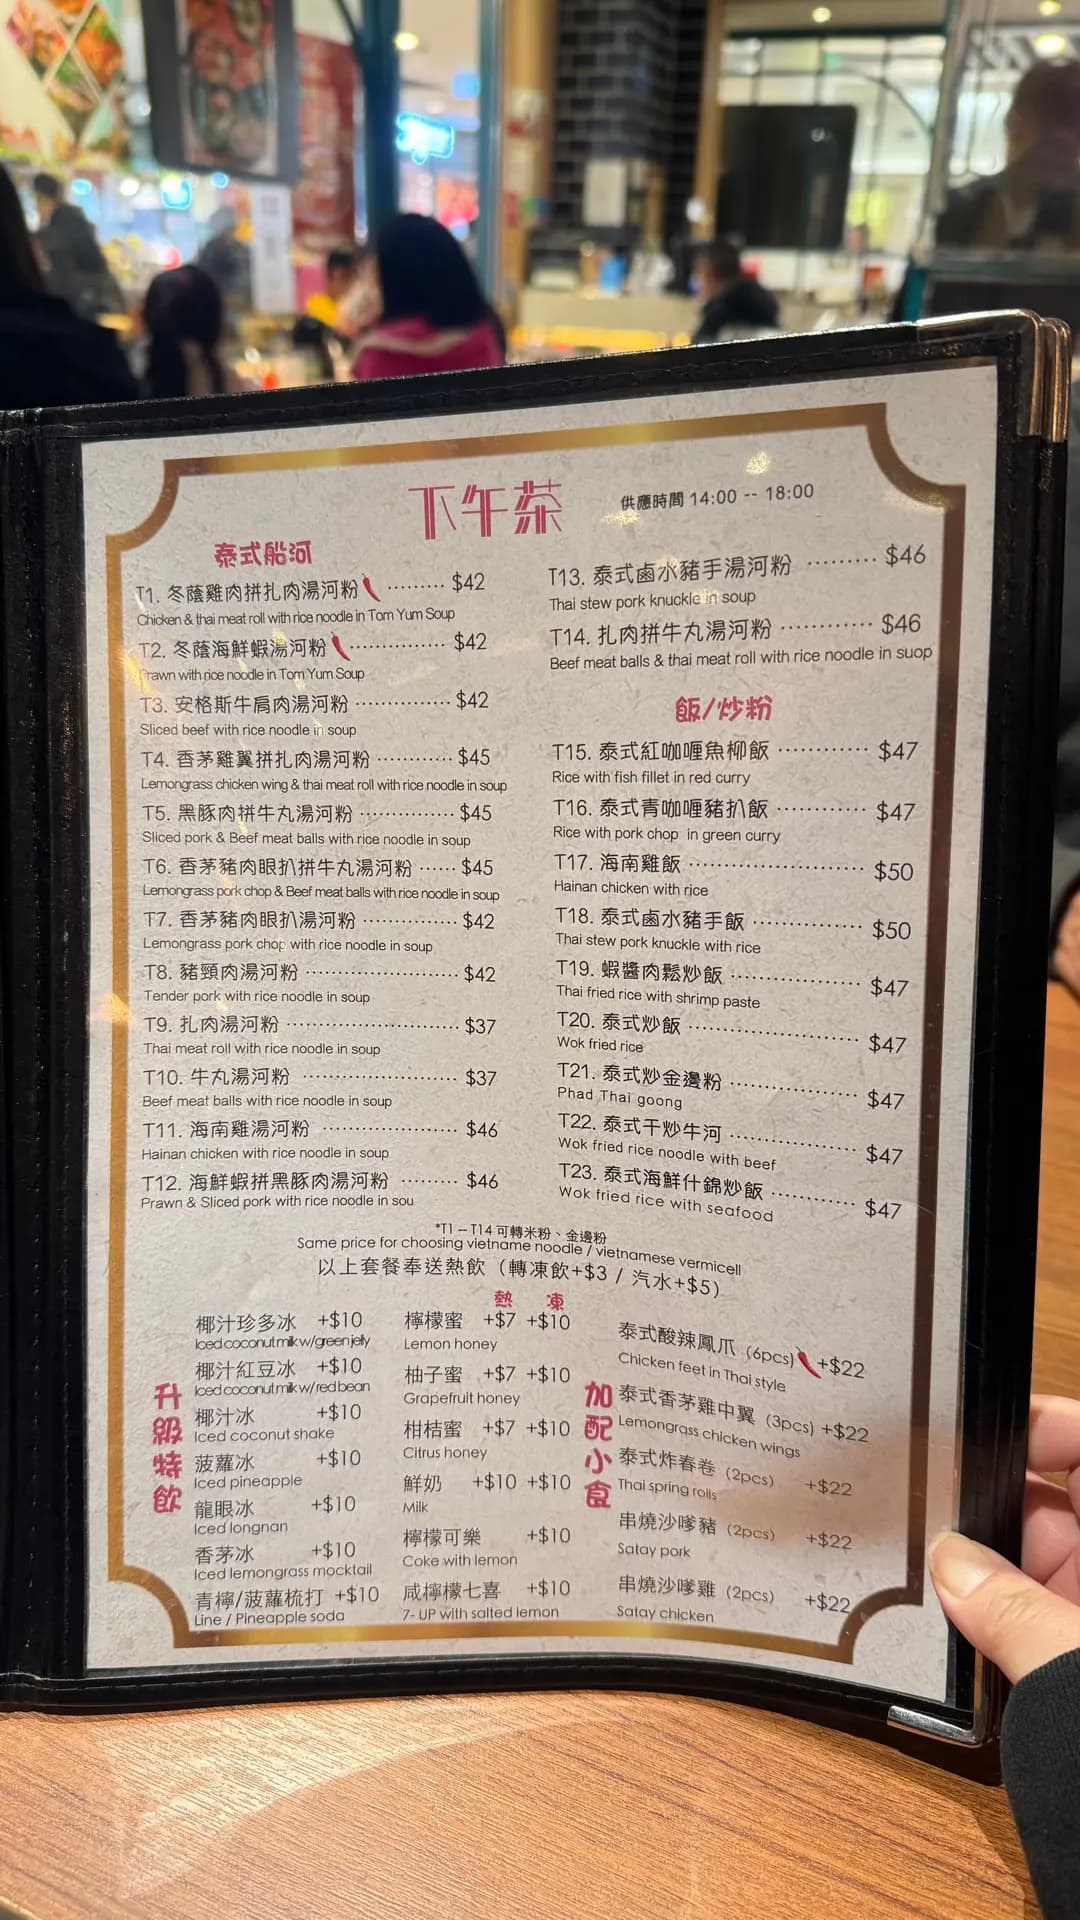 下午茶
供應時間 14:00 -- 18:00
泰式船河
T1. 冬蔭雞肉拼扎肉湯河粉 ········· $42
Chicken & thai meat roll with rice noodle in Tom Yum Soup
T2. 冬蔭海鮮蝦湯河粉 ·············· $42
Prawn with rice noodle in Tom Yum Soup
T3. 安格斯牛肩肉湯河粉 ·············· $42
Sliced beef with rice noodle in soup
T4. 香茅雞翼拼扎肉湯河粉 ············ $45
Lemongrass chicken wing & thai meat roll with rice noodle in soup
T5. 黑豚肉拼牛丸湯河粉 ·············· $45
Sliced pork & Beef meat balls with rice noodle in soup
T6. 香茅豬肉眼扒拼牛丸湯河粉 ······ $45
Lemongrass pork chop & Beef meat balls with rice noodle in soup
T7. 香茅豬肉眼扒湯河粉 ·············· $42
Lemongrass pork chop with rice noodle in soup
T8. 豬頸肉湯河粉 ······················· $42
Tender pork with rice noodle in soup
T9. 扎肉湯河粉 ·························· $37
Thai meat roll with rice noodle in soup
T10. 牛丸湯河粉 ······················· $37
Beef meat balls with rice noodle in soup
T11. 海南雞湯河粉 ···················· $46
Hainan chicken with rice noodle in soup
T12. 海鮮蝦拼黑豚肉湯河粉 ········· $46
Prawn & Sliced pork with rice noodle in sou
T13. 泰式鹵水豬手湯河粉 ········· $46
Thai stew pork knuckle in soup
T14. 扎肉拼牛丸湯河粉 ············ $46
Beef meat balls & thai meat roll with rice noodle in suop
飯/炒粉
T15. 泰式紅咖喱魚柳飯 ············ $47
Rice with fish fillet in red curry
T16. 泰式青咖喱豬扒飯 ············ $47
Rice with pork chop in green curry
T17. 海南雞飯 ······················· $50
Hainan chicken with rice
T18. 泰式鹵水豬手飯 ·············· $50
Thai stew pork knuckle with rice
T19. 蝦醬肉鬆炒飯 ················· $47
Thai fried rice with shrimp paste
T20. 泰式炒飯 ······················· $47
Wok fried rice
T21. 泰式炒金邊粉 ················· $47
Phad Thai goong
T22. 泰式干炒牛河 ················· $47
Wok fried rice noodle with beef
T23. 泰式海鮮什錦炒飯 ··········· $47
Wok fried rice with seafood
*T1 – T14 可轉米粉、金邊粉
Same price for choosing vietname noodle / vietnamese vermicell
以上套餐奉送熱飲（轉凍飲+$3 / 汽水+$5）
升級特飲
椰汁珍多冰 +$10
Iced coconut milk w/green jelly
椰汁紅豆冰 +$10
Iced coconut milk w/red bean
椰汁冰 +$10
Iced coconut shake
菠蘿冰 +$10
Iced pineapple
龍眼冰 +$10
Iced longnan
香茅冰 +$10
Iced lemongrass mocktail
青檸/菠蘿梳打 +$10
Line / Pineapple soda
熱 凍
檸檬蜜 +$7 +$10
Lemon honey
柚子蜜 +$7 +$10
Grapefruit honey
柑桔蜜 +$7 +$10
Citrus honey
鮮奶 +$10 +$10
Milk
檸檬可樂 +$10
Coke with lemon
咸檸檬七喜 +$10
7- UP with salted lemon
加配小食
泰式酸辣鳳爪 (6pcs) +$22
Chicken feet in Thai style
泰式香茅雞中翼 (3pcs) +$22
Lemongrass chicken wings
泰式炸春卷 (2pcs) +$22
Thai spring rolls
串燒沙嗲豬 (2pcs) +$22
Satay pork
串燒沙嗲雞 (2pcs) +$22
Satay chicken